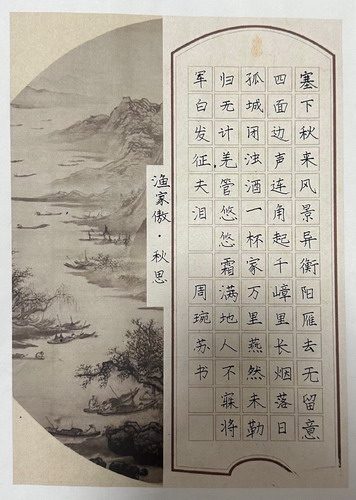 塞下秋来风景异衡阳雁去无留意
四面边声连角起千嶂里长烟落日
孤城闭浊酒一杯家万里燕然未勒
归无计羌管悠悠霜满地人不寐将
军白发征夫泪 周琬苏书
渔家傲·秋思